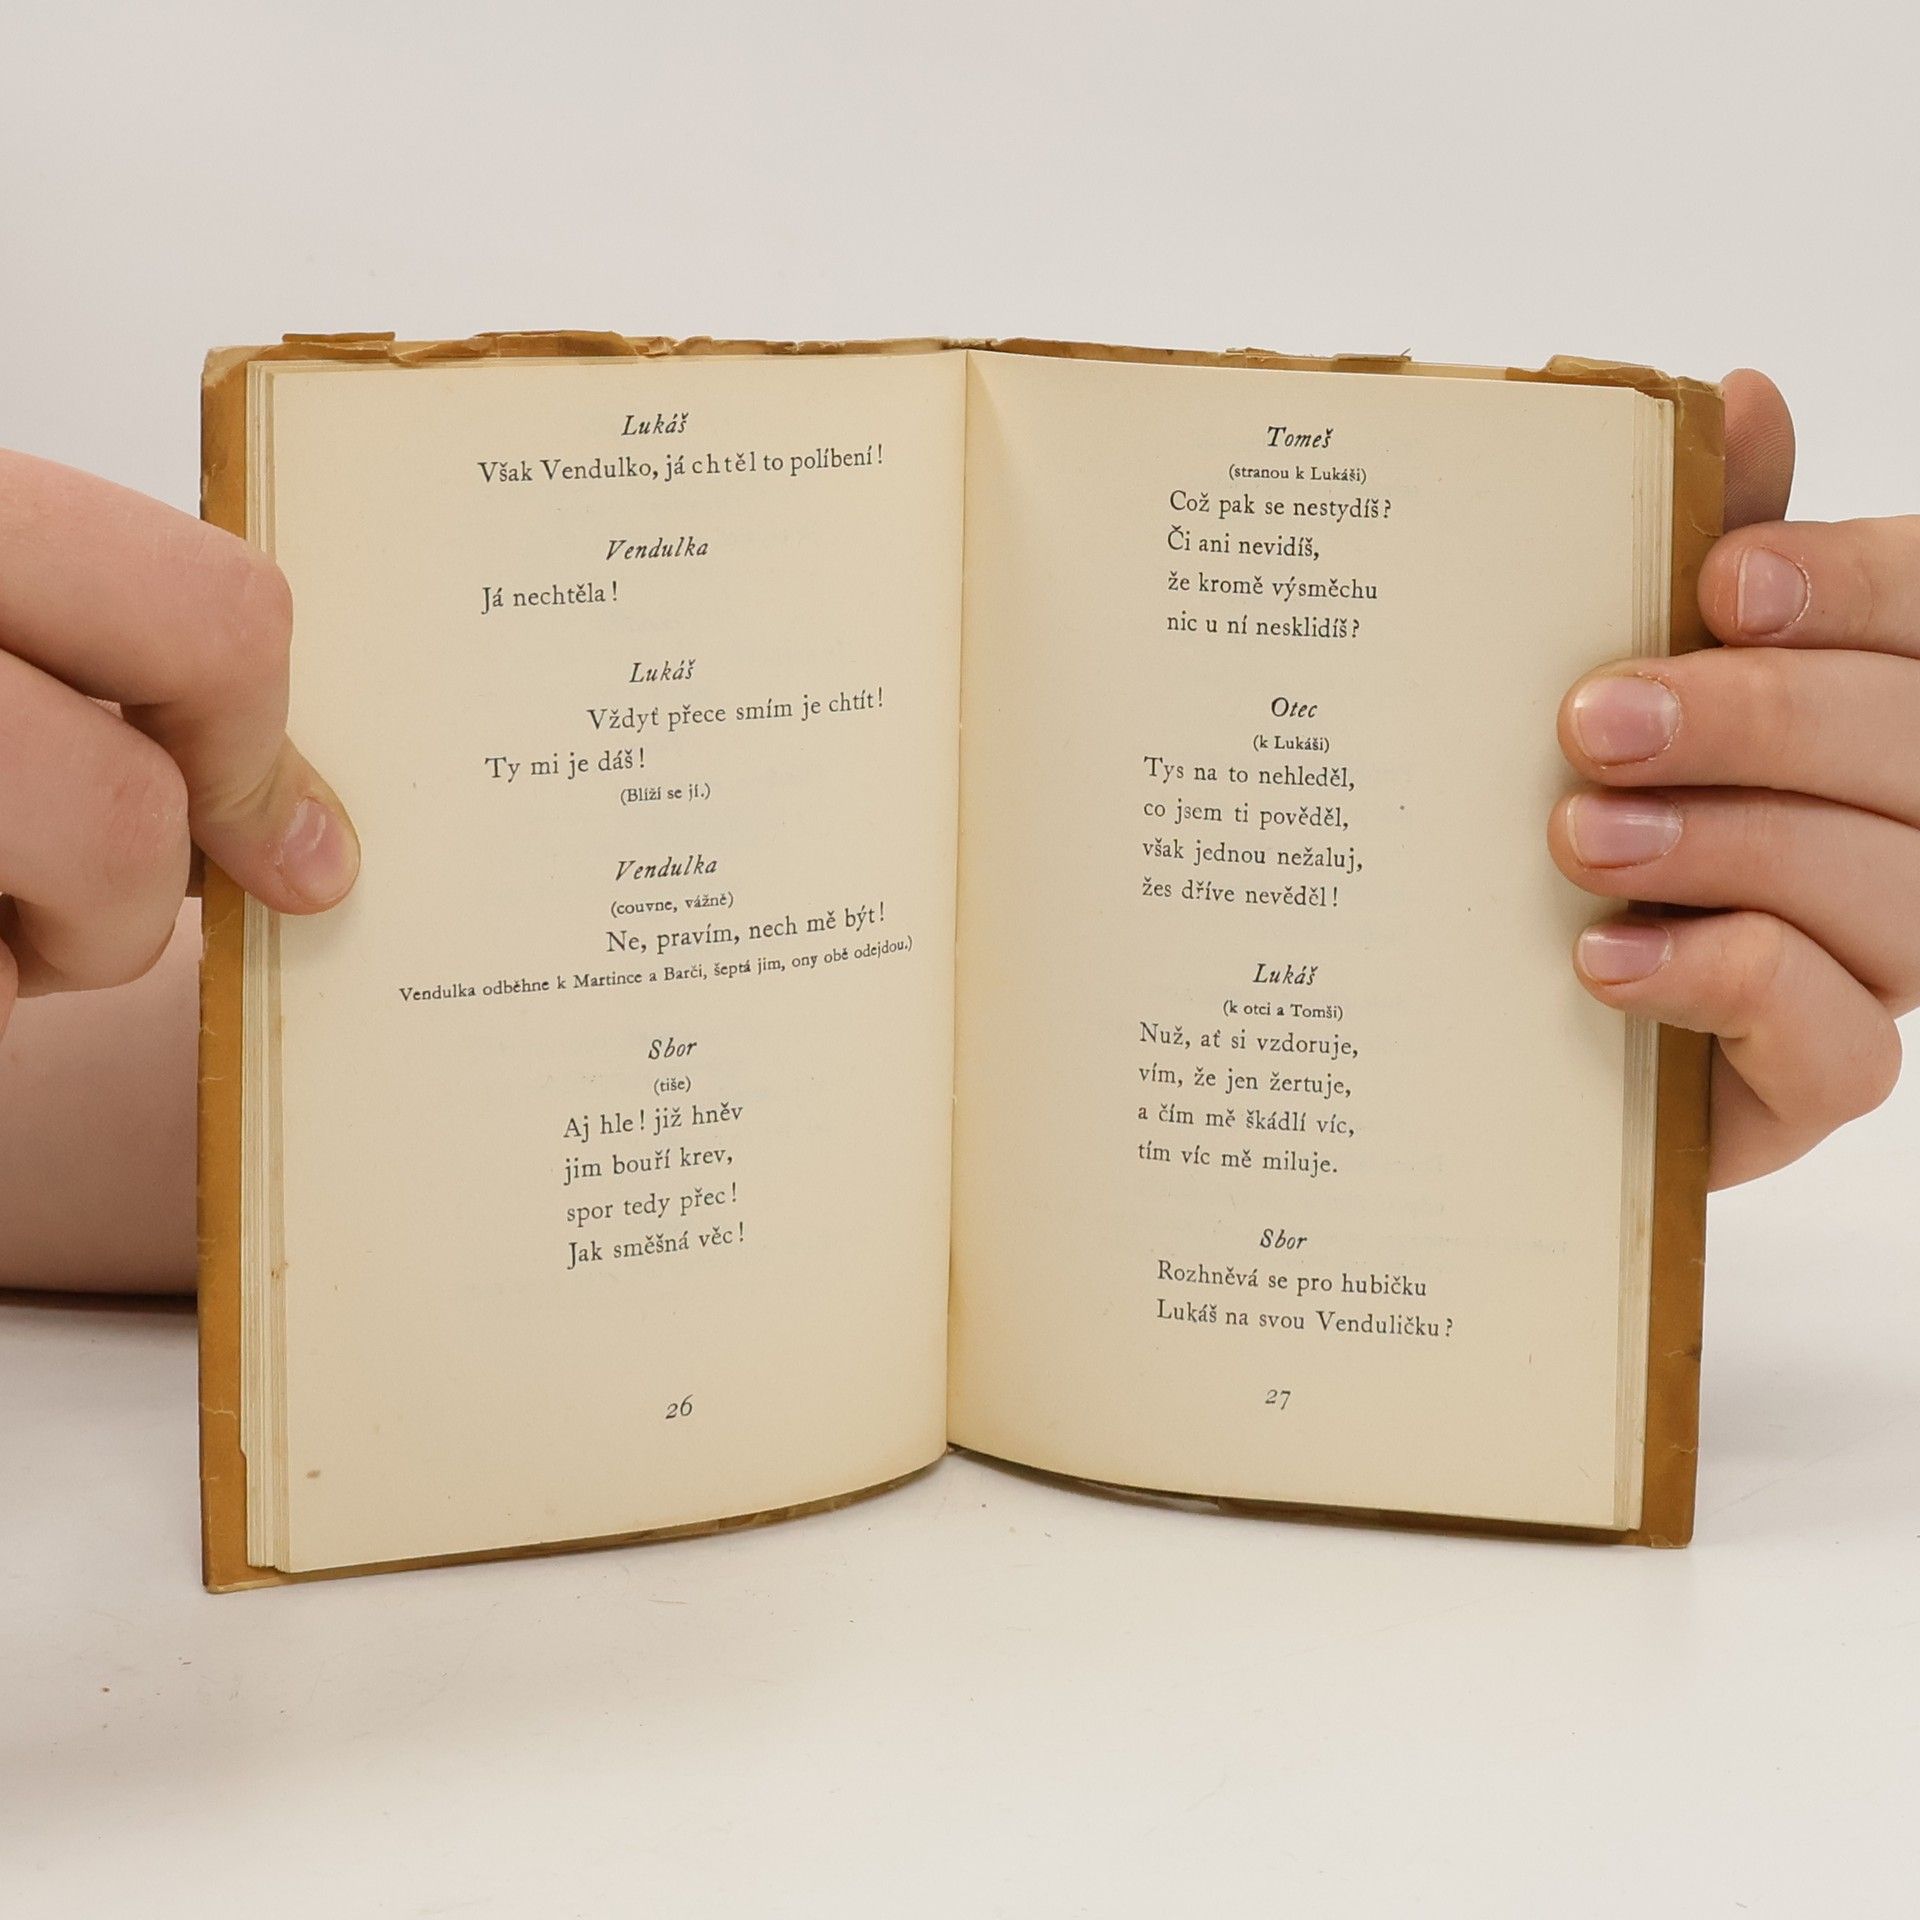 Lukáš
Však Vendulko, já chtěl to políbení!
Vendulka
Já nechtěla!
Lukáš
Vždyť přece smím je chtít!
Ty mi je dáš!
(Blíží se jí.)
Vendulka
(couvne, vážně)
Ne, pravím, nech mě být!
Vendulka odběhne k Martince a Barči, šeptá jim, ony obě odejdou.)
Sbor
(tiše)
Aj hle! již hněv
jim bouří krev,
spor tedy přec!
Jak směšná věc!
26
Tomeš
(stranou k Lukáši)
Což pak se nestydíš?
Či ani nevidíš,
že kromě výsměchu
nic u ní nesklidíš?
Otec
(k Lukáši)
Tys na to nehleděl,
co jsem ti pověděl,
však jednou nežaluj,
žes dříve nevěděl!
Lukáš
(k otci a Tomši)
Nuž, ať si vzdoruje,
vím, že jen žertuje,
a čím mě škádlí víc,
tím víc mě miluje.
Sbor
Rozhněvá se pro hubičku
Lukáš na svou Venduličku?
27